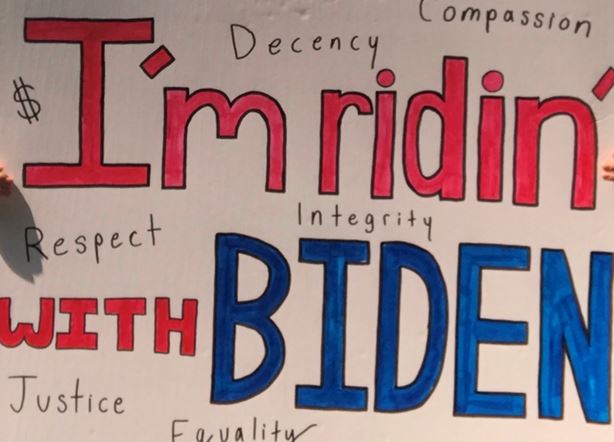 Compassion
Decency
$ I'm ridin'
Integrity
Respect
WITH BIDEN
Justice
Equality